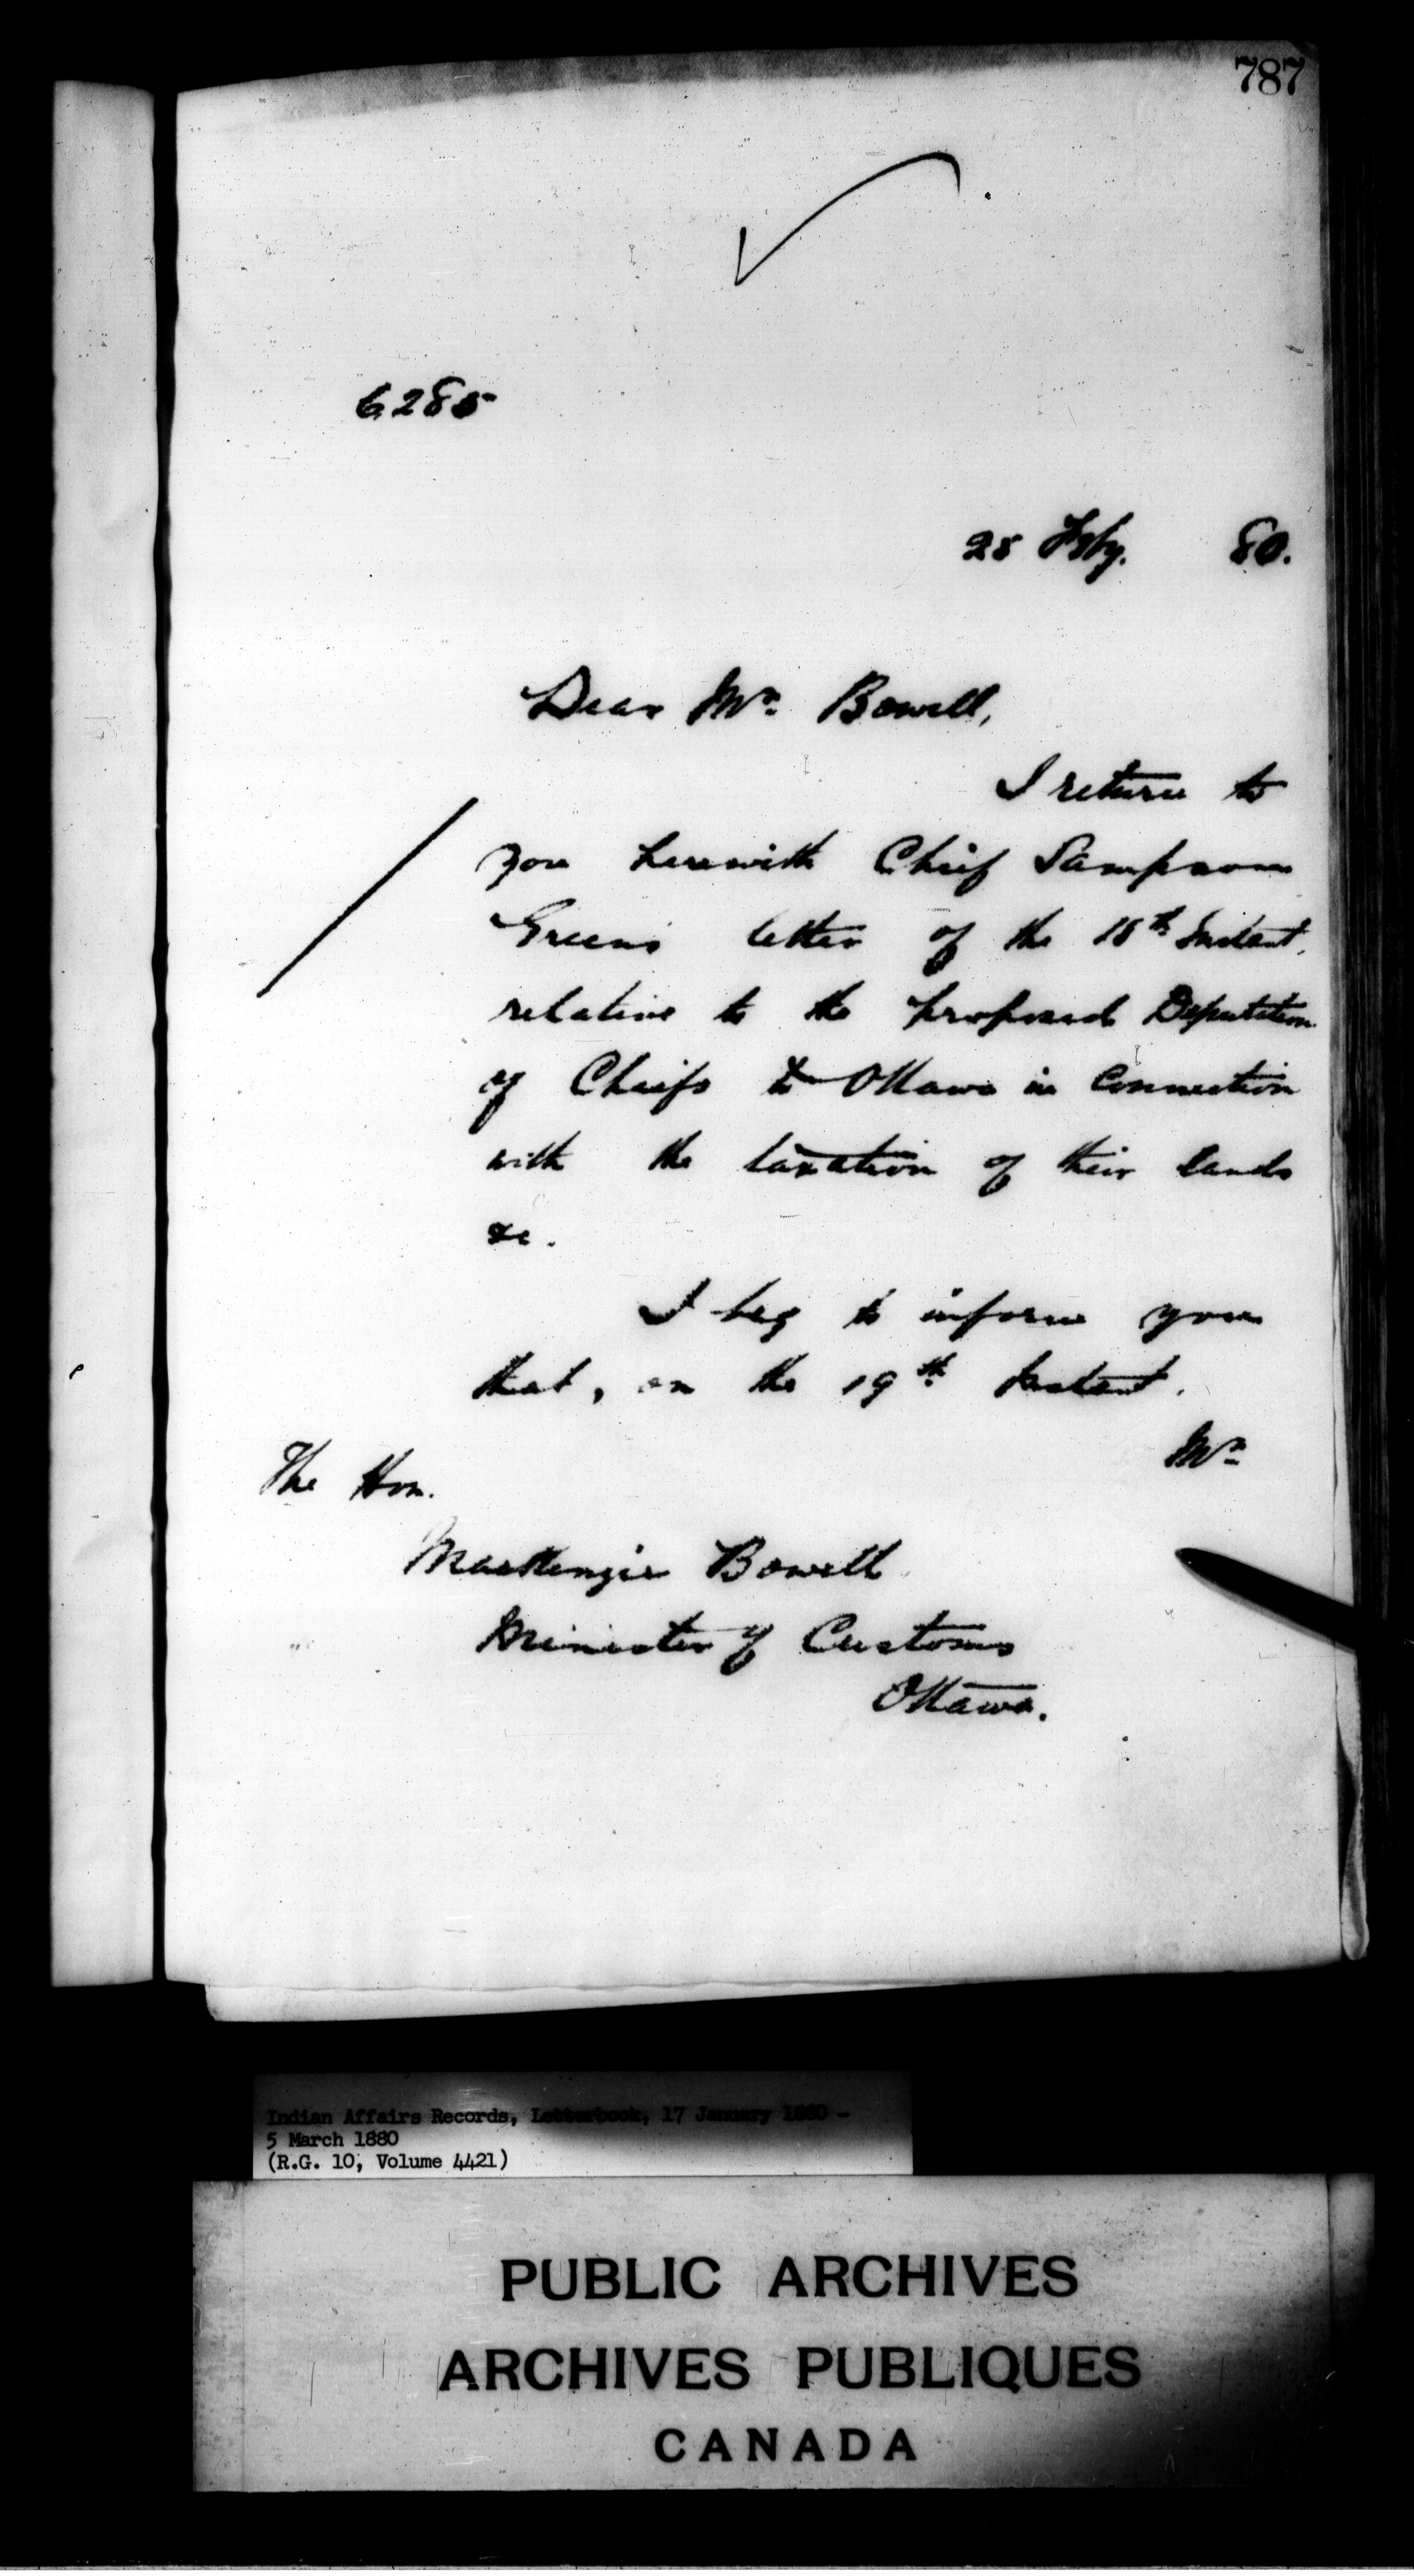 787
6285
25 Feby. 80.
Dear Mr. Bowell,
I return to
you herewith Chief Sampson
Green's letter of the 18th Instant,
relative to the proposed Deputation
of Chiefs to Ottawa in connection
with the taxation of their lands
&c.
I beg to inform you
that, on the 19th Instant,
Mr.
The Hon.
MacKenzie Bowell
Minister of Customs
Ottawa.
Indian Affairs Records, Letterbook, 17 January 1880 -
5 March 1880
(R.G. 10, Volume 4421)
PUBLIC ARCHIVES
ARCHIVES PUBLIQUES
CANADA